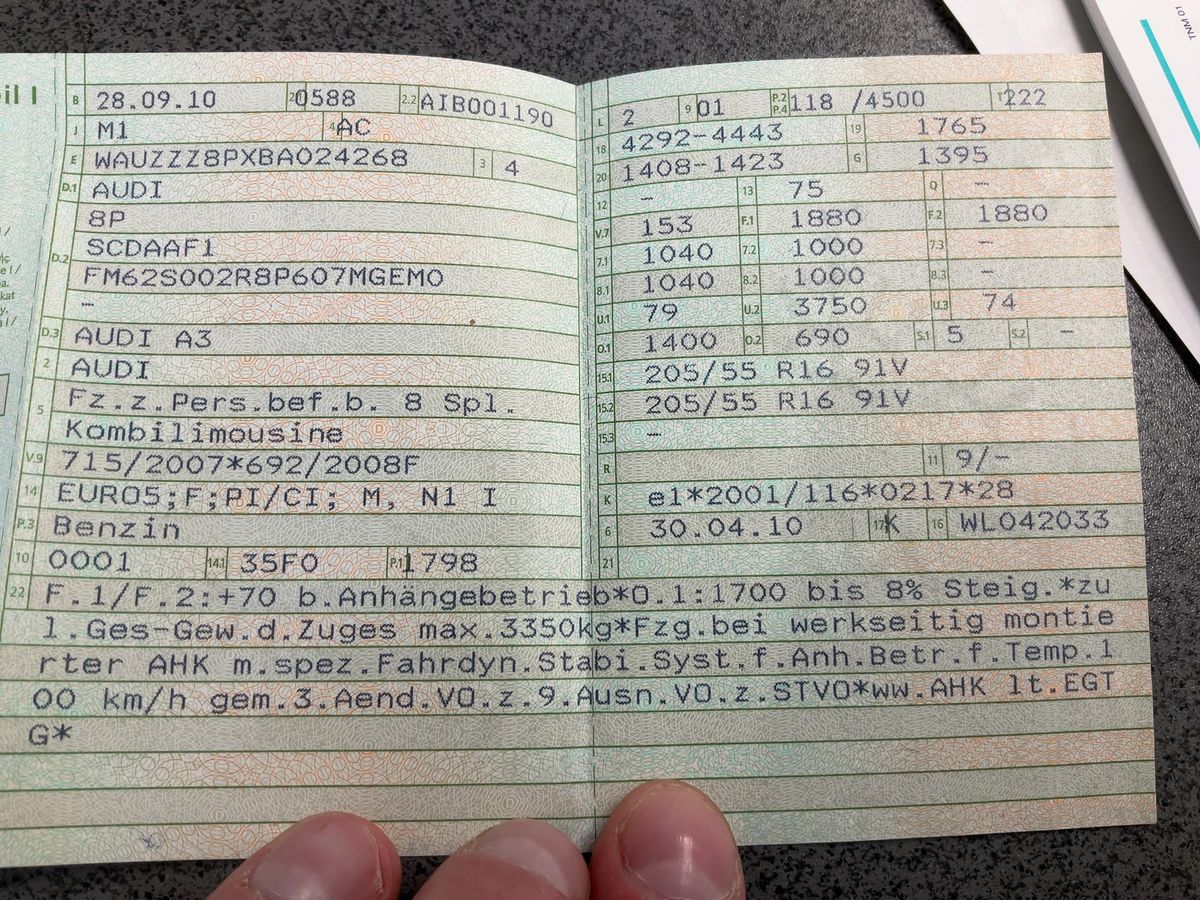 eil I
B 28.09.10 2.1 0588 2.2 AIB001190
J M1 4 AC
E WAUZZZ8PXBA024268 3 4
D.1 AUDI
8P
D.2 SCDAAF1
FM62S002R8P607MGEM0
–
D.3 AUDI A3
2 AUDI
5 Fz.z.Pers.bef.b. 8 Spl.
Kombilimousine
V.9 715/2007*692/2008F
14 EURO5;F;PI/CI; M, N1 I
P.3 Benzin
10 0001 14.1 35F0 P.1 1798
L 2 9 01 P.2 P.4 118 /4500 T 222
18 4292-4443 19 1765
20 1408-1423 G 1395
12 – 13 75 Q –
V.7 153 F.1 1880 F.2 1880
7.1 1040 7.2 1000 7.3 –
8.1 1040 8.2 1000 8.3 –
U.1 79 U.2 3750 U.3 74
O.1 1400 O.2 690 S.1 5 S.2 –
15.1 205/55 R16 91V
15.2 205/55 R16 91V
15.3 –
R 11 9/-
K e1*2001/116*0217*28
6 30.04.10 17 K 16 WL042033
21
22 F.1/F.2:+70 b.Anhängebetrieb*O.1:1700 bis 8% Steig.*zu
l.Ges-Gew.d.Zuges max.3350kg*Fzg.bei werkseitig montie
rter AHK m.spez.Fahrdyn.Stabi.Syst.f.Anh.Betr.f.Temp.1
00 km/h gem.3.Aend.VO.z.9.Ausn.VO.z.STVO*ww.AHK lt.EGT
G*
TNM 01